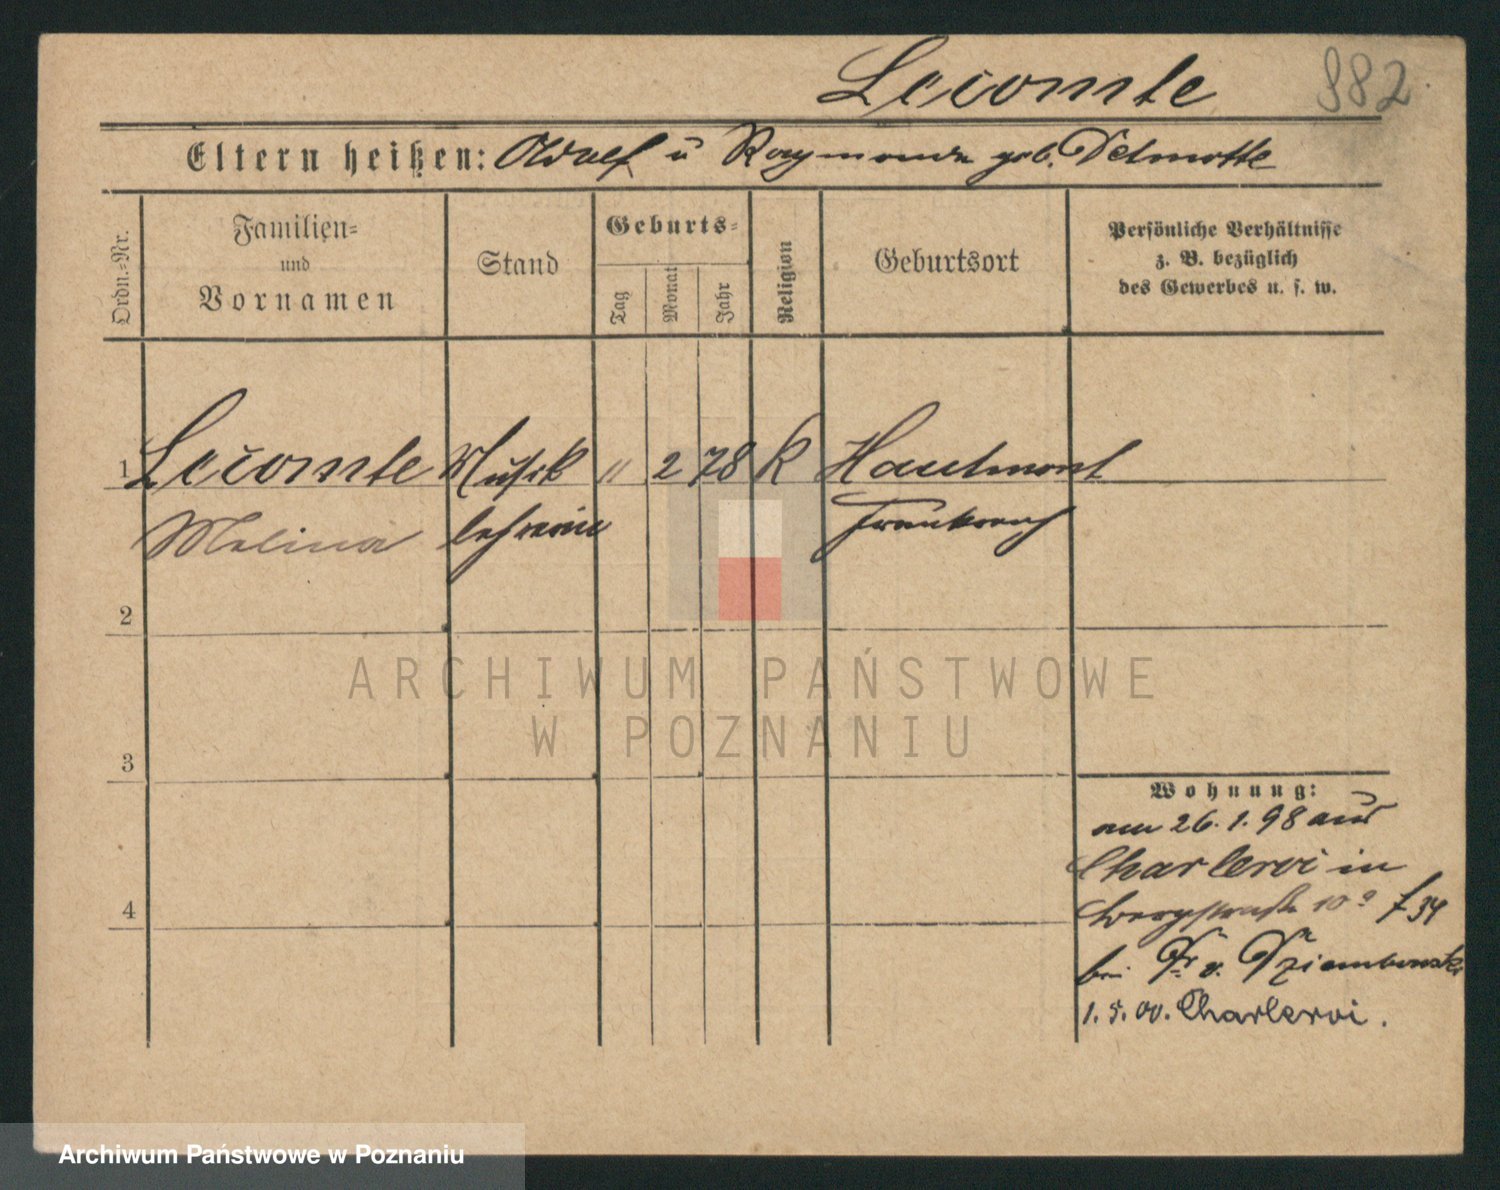 Lecomte 882
Eltern heißen: Adolf u Raymonde geb. Delmotte
Ordn.-Nr.
Familien-
und
Vornamen
Stand
Geburts-
Tag
Monat
Jahr
Religion
Geburtsort
Persönliche Verhältnisse
z. B. bezüglich
des Gewerbes u. s. w.
1 Lecomte Musik " 2 78 k Hautmont
Melina lehrerin Frankreich
2
3
4
ARCHIWUM PAŃSTWOWE
W POZNANIU
Wohnung:
am 26. 1. 98 aus
Charleroi in
10
bei Dr v. Dziembowski
1. 5. 00. Charleroi.
Archiwum Państwowe w Poznaniu